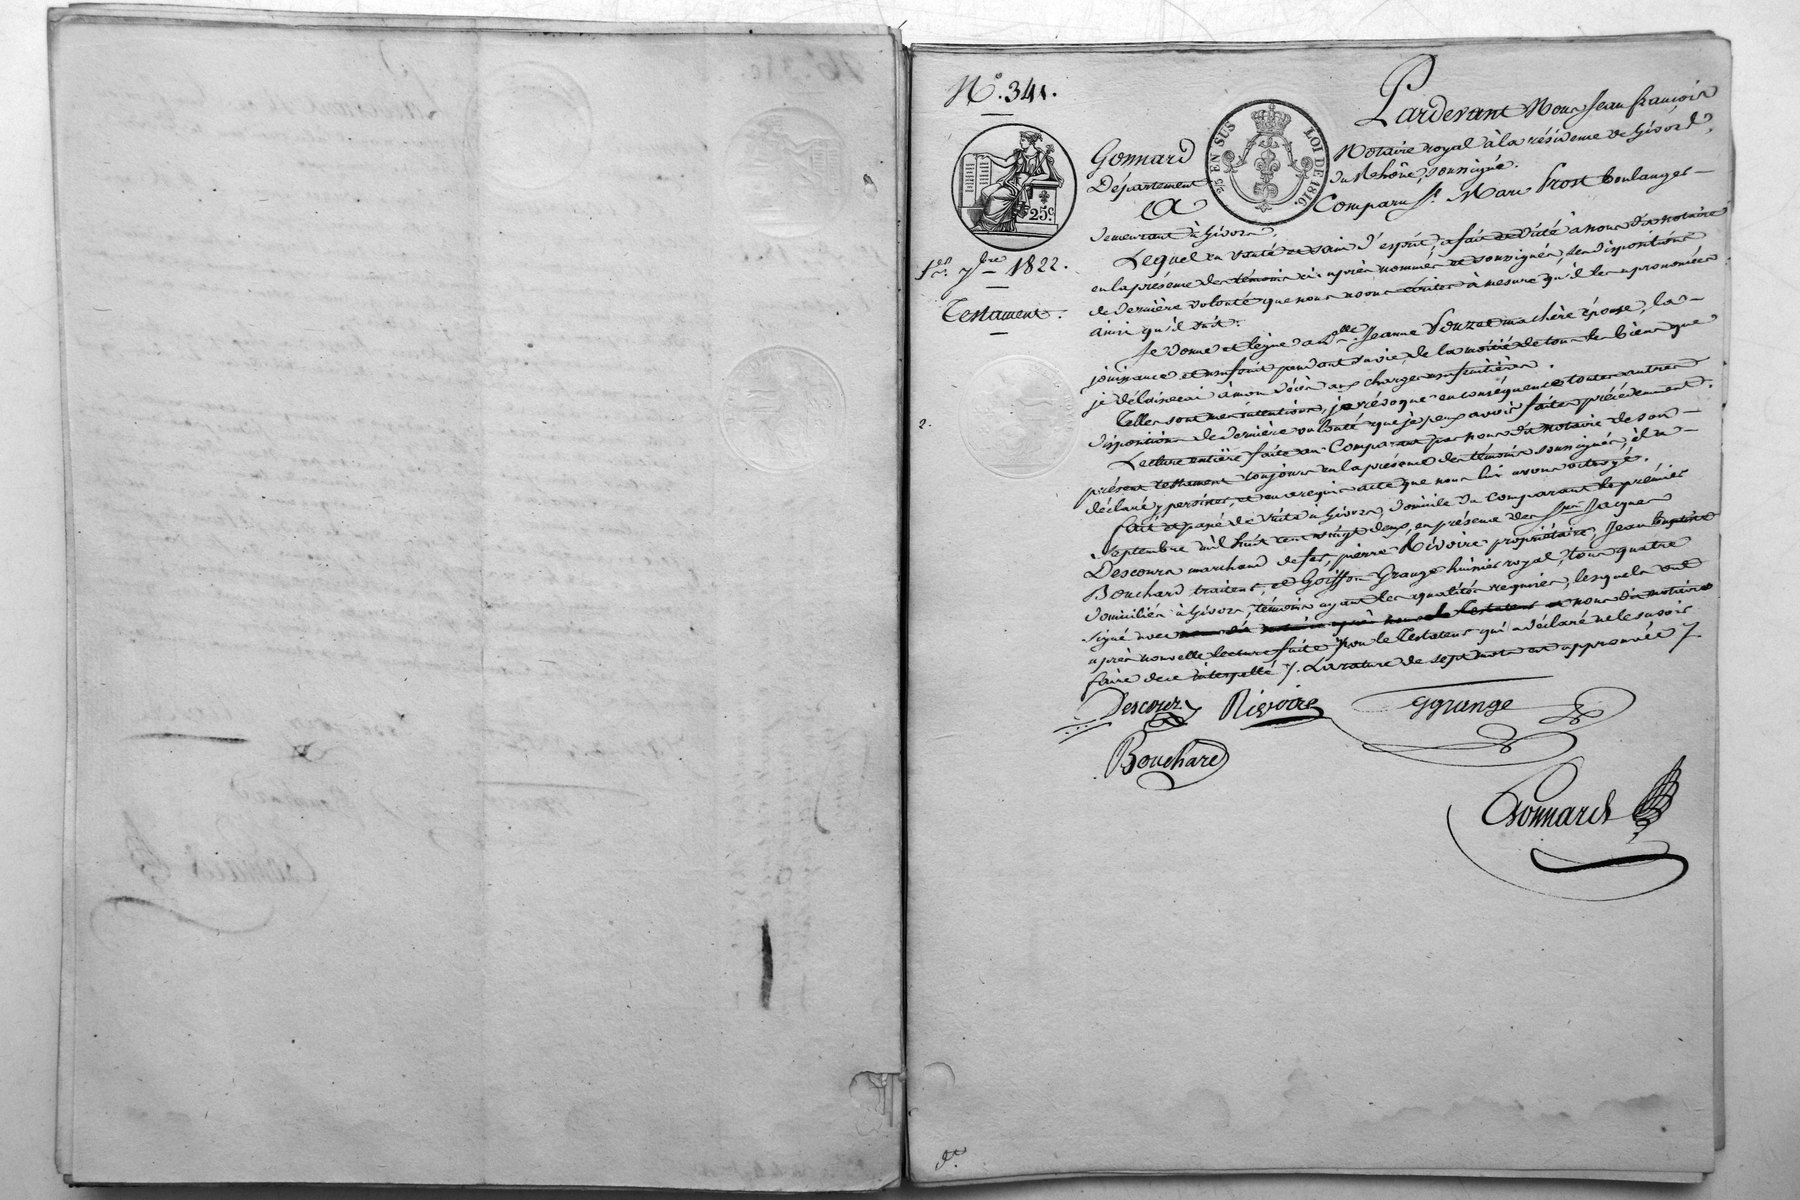 N.° 341.
25 c.
25 EN SUS LOI DE 1816.
1.er 7bre 1822.
Testament.
Pardevant Nous Jean François
Gonnard Notaire royal à la résidence de Givors,
Département du Rhône, soussigné.
A Comparu Sr. Marc Prost boulanger
demeurant à Givors.
Lequel en santé et sain d'esprit, a fait et dicté à nous dit notaire
en la présence des témoins ci-après nommés et soussignés, ses dispositions
de dernière volonté que nous avons écrites à mesure qu'il les a prononcées
ainsi qu'il suit.
Je donne et lègue à delle. Jeanne Pouzet ma chère épouse, la
jouissance et usufruit pendant sa vie, de la moitié de tous les biens que
je délaisserai à mon décès aux charges usufruitières.
Telles sont mes intentions, je révoque en conséquence toutes autres
dispositions de dernière volonté que je peux avoir faites précédemment.
Lecture entière faite au Comparant par nous dit notaire de son
présent testament toujours en la présence des témoins soussignés, il a
déclaré y persister, et en a requis acte que nous lui avons octroyé.
fait et passé de suite à Givors, domicile du comparant le premier
Septembre mil huit cent vingt deux, en présence des srs. Jacques
Descours marchand de fer, pierre Rivoire propriétaire, Jean baptiste
Bouchard traiteur, et Goiffon Grange huissier royal, tous quatre
domiciliés à Givors, témoins ayant les qualités requises, lesquels ont
signé avec nous dit notaire
après nouvelle lecture faite, non le Testateur qui a déclaré ne le savoir
faire de ce interpellé /. La rature de sept mots est approuvée /.
Descours Rivoire GGrange
Bouchard
Gonnard
2.